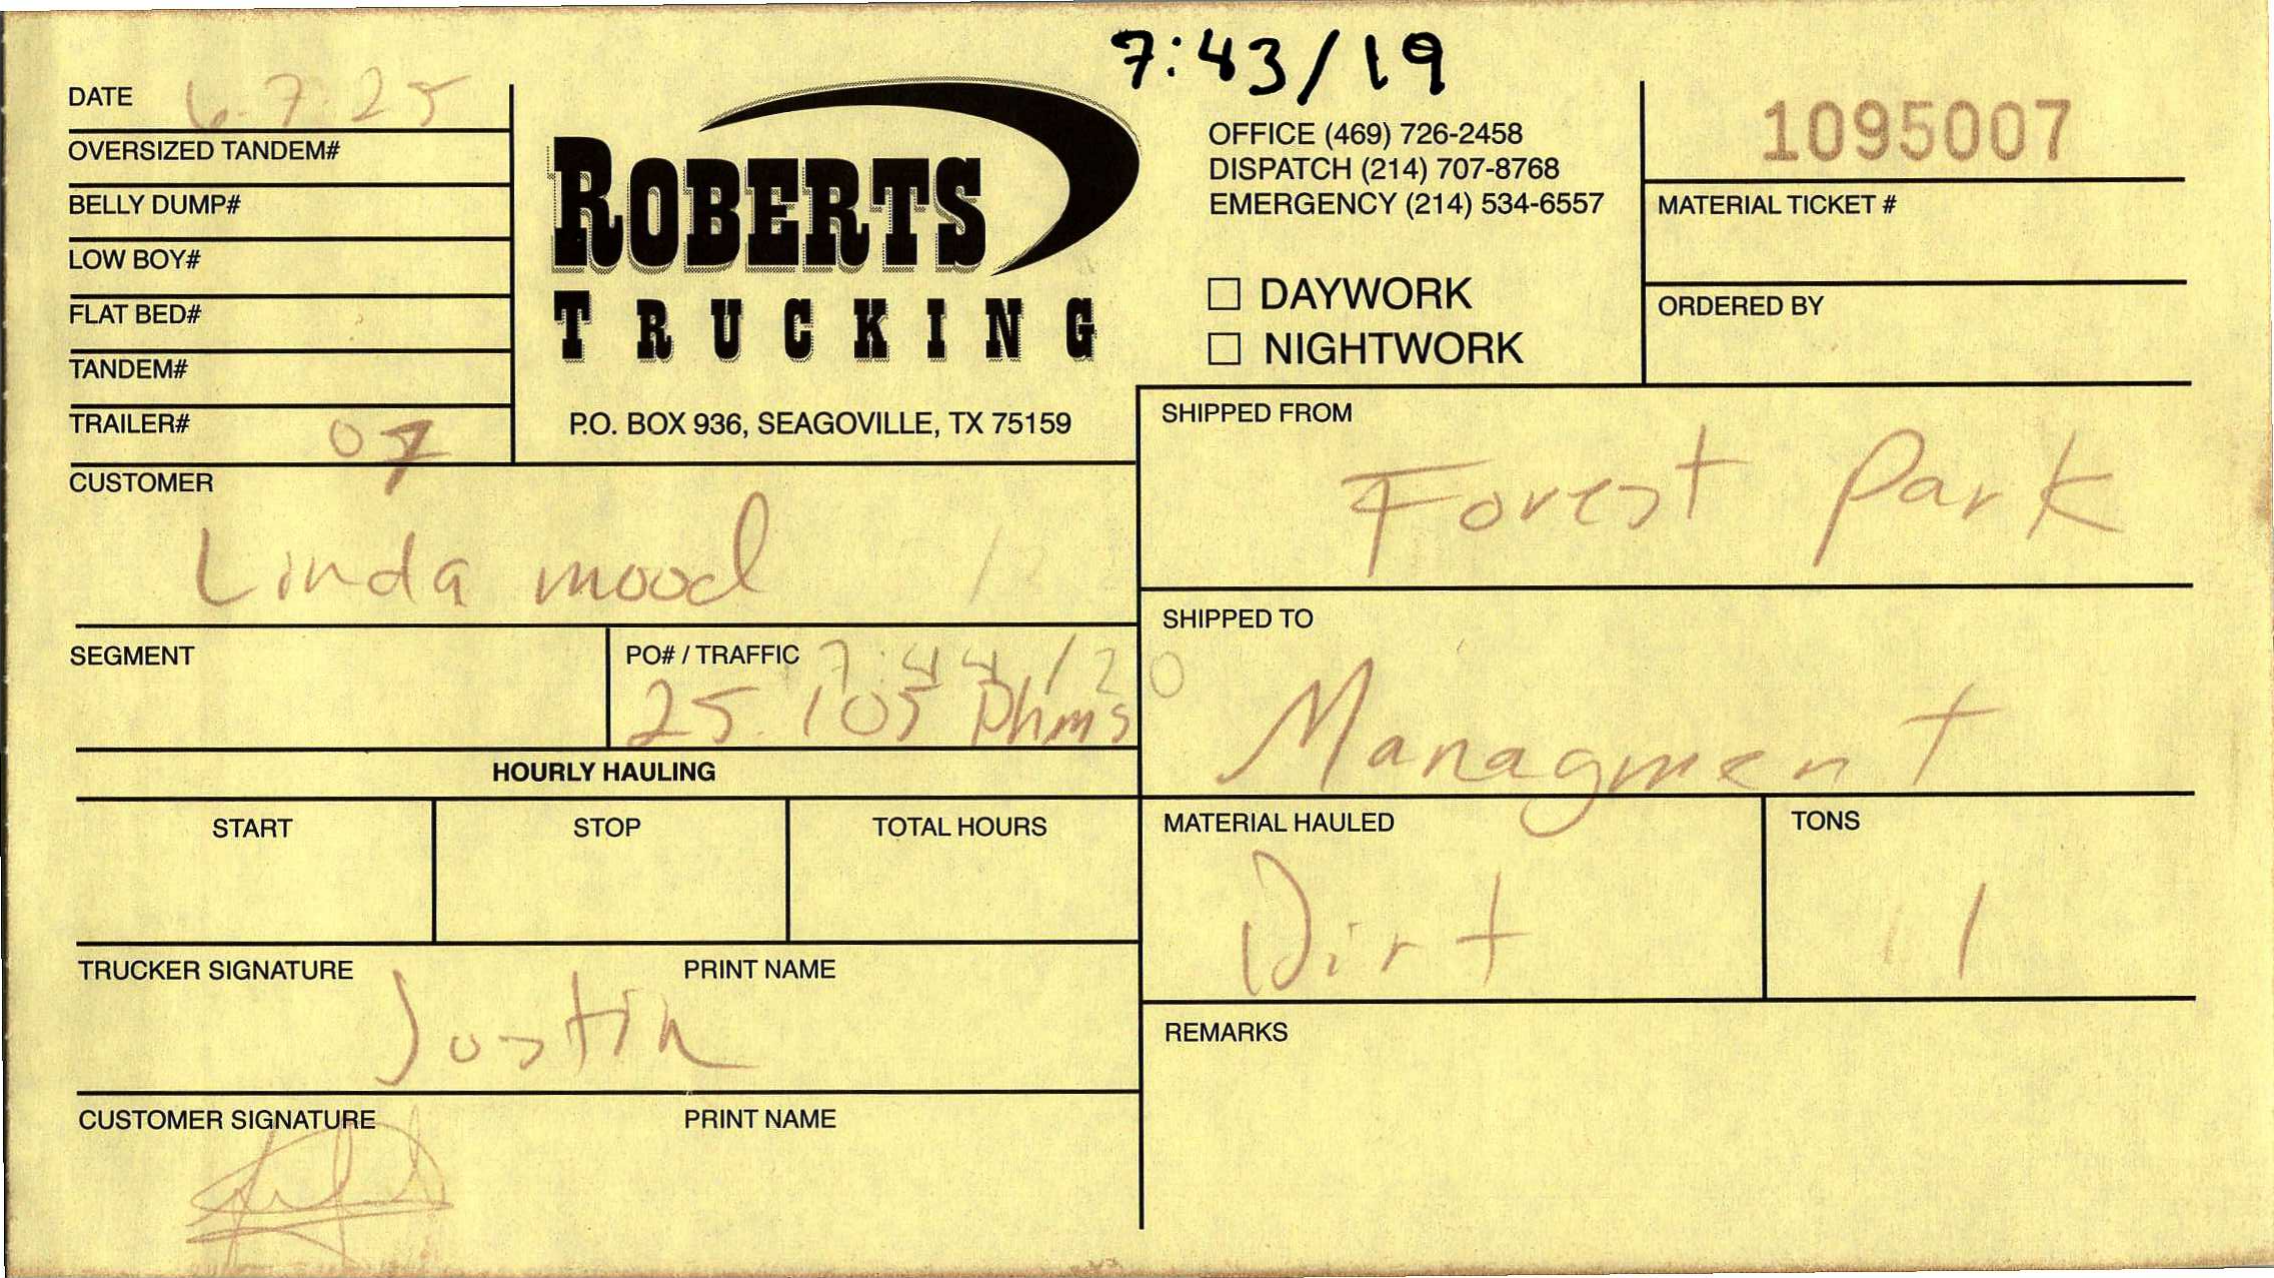 7:43/19
DATE 6-7-25
OVERSIZED TANDEM#
BELLY DUMP#
LOW BOY#
FLAT BED#
TANDEM#
TRAILER# 07
ROBERTS
TRUCKING
P.O. BOX 936, SEAGOVILLE, TX 75159
OFFICE (469) 726-2458
DISPATCH (214) 707-8768
EMERGENCY (214) 534-6557
☐ DAYWORK
☐ NIGHTWORK
1095007
MATERIAL TICKET #
ORDERED BY
CUSTOMER
Linda mood
SHIPPED FROM
Forest Park
SEGMENT
PO# / TRAFFIC 7:44/20
25.105 Dhms
SHIPPED TO
Managment
HOURLY HAULING
START STOP TOTAL HOURS
MATERIAL HAULED
Dirt
TONS
TRUCKER SIGNATURE PRINT NAME
Justin
CUSTOMER SIGNATURE PRINT NAME
REMARKS